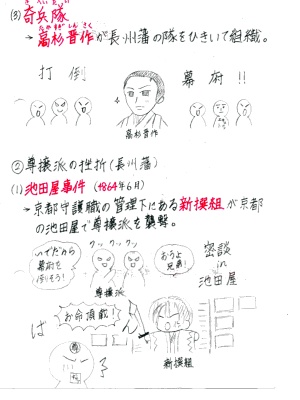 (3) 奇兵隊
きへいたい
たかすぎしんさく
→ 高杉晋作が長州藩の隊をひきいて組織。
打倒 幕府!!
高杉晋作
②尊攘派の挫折(長州藩)
(1) 池田屋事件 (1864年6月)
→ 京都守護職の管理下にある新撰組が京都
の池田屋で尊攘派を襲撃。
クックックッ
おうよ
兄弟!
密談
in
池田屋
幕府を
倒そう!
尊攘派
お命頂戴!
は
尊
新撰組